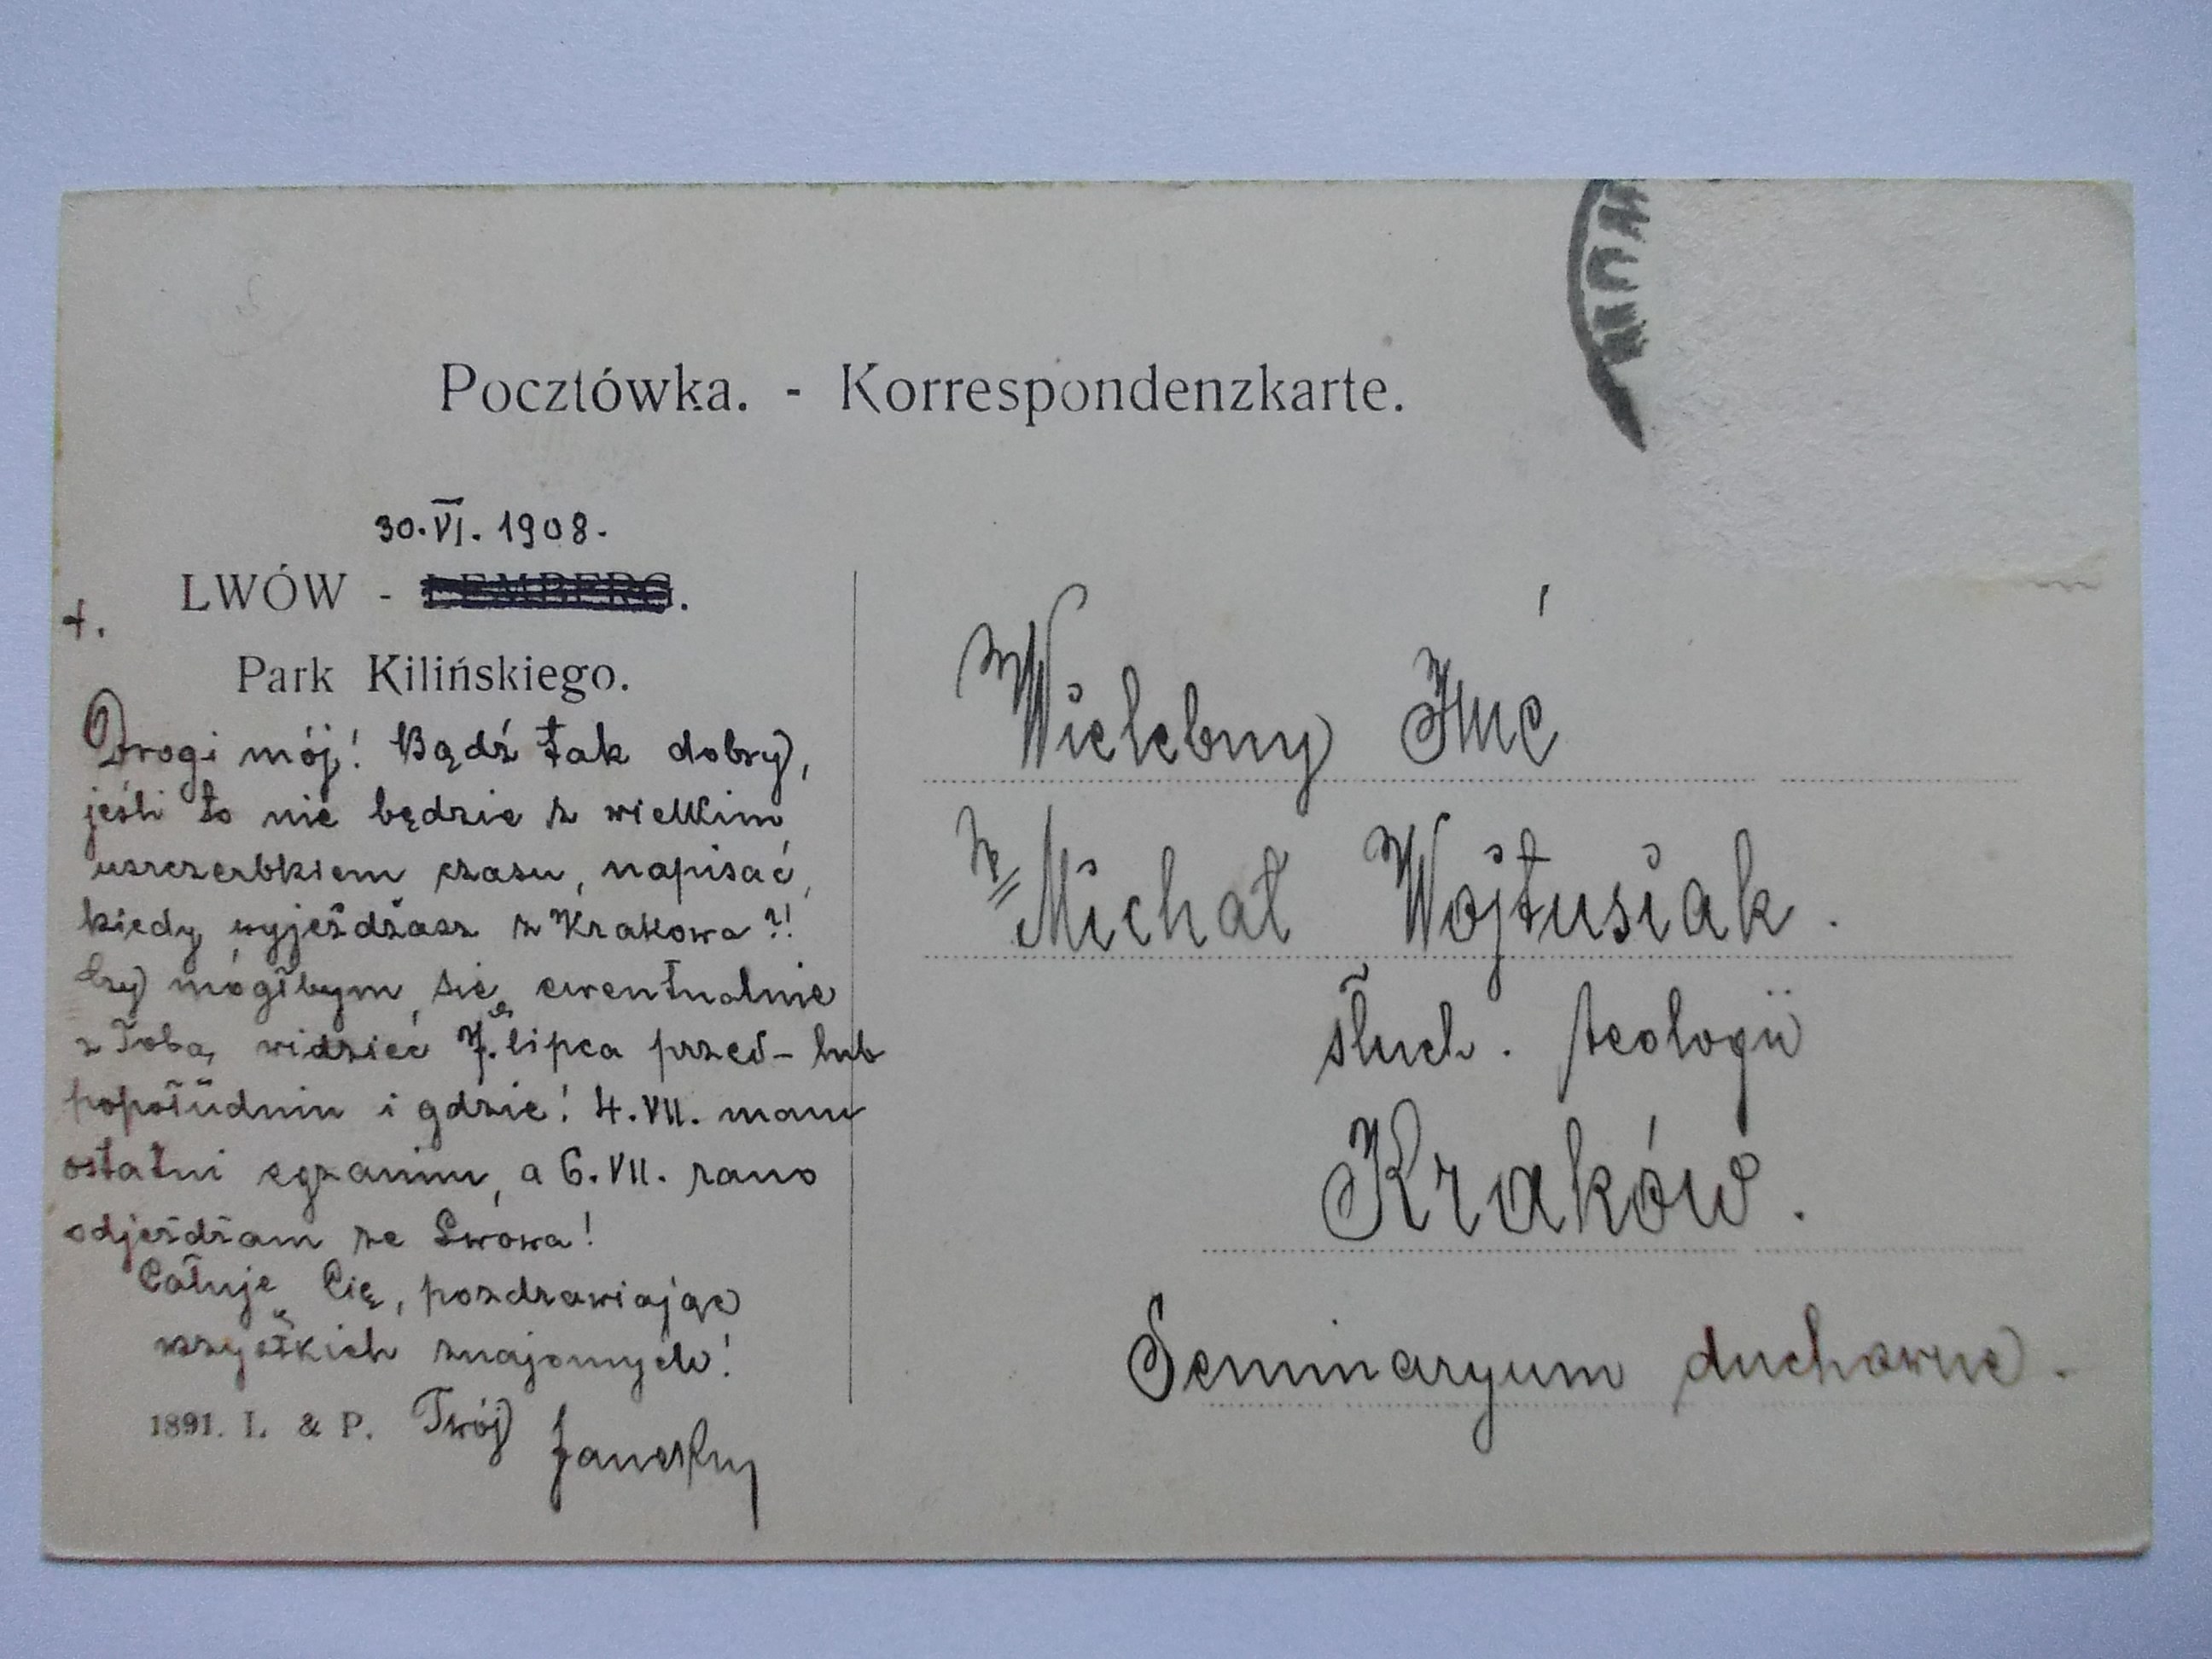 Pocztówka. - Korrespondenzkarte.
30.VI. 1908.
LWÓW - LEMBERG.
+.
Park Kilińskiego.
Drogi mój! Bądź tak dobry,
jeśli to nie będzie z wielkim
uszczerbkiem czasu, napisać,
kiedy wyjeżdżasz z Krakowa?!
Czy mógłbym się ewentualnie
z Tobą widzieć 7. lipca przed- lub
popołudniu i gdzie! 4.VII. mam
ostatni egzamin, a 6.VII. rano
odjeżdżam ze Lwowa!
Całuję Cię, pozdrawiając
wszystkich znajomych!
1891. L. & P. Twój
Wielebny Imć
Michał Wojtusiak.
słuch. teologii
Kraków.
Seminaryum duchowne.